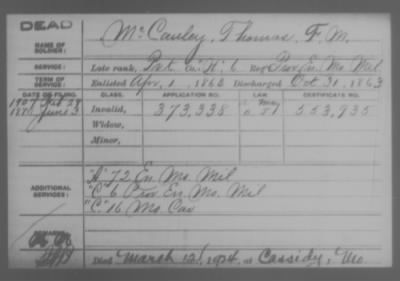 DEAD
NAME OF SOLDIER: McCauley, Thomas F. M.
SERVICE: Late rank, Pvt. Co. "H", 6 Reg't Prov. En. Mo. Mil.
TERM OF SERVICE: Enlisted Apr. 1, 1863 Discharged Oct 31, 1863
DATE OF FILING. CLASS. APPLICATION NO. LAW. CERTIFICATE NO.
1907 Feb 28
June 3 Invalid, 373,338 553,935
Widow,
Minor,
ADDITIONAL SERVICES: "A" 72 En. Mo. Mil
"C" 6 Prov En. Mo. Mil
"C" 16 Mo. Cav
REMARKS:
Died March 12, 1924, at Cassidy, Mo.